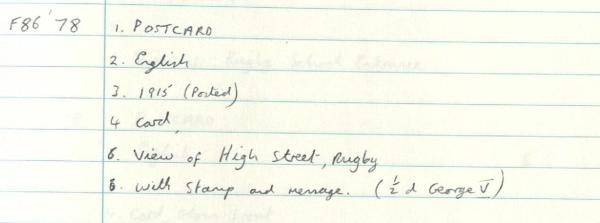 F86'78 1. POSTCARD
2. English
3. 1915 (Posted)
4 Card,
5. View of High Street, Rugby
6. With Stamp and message. (½ d George V)